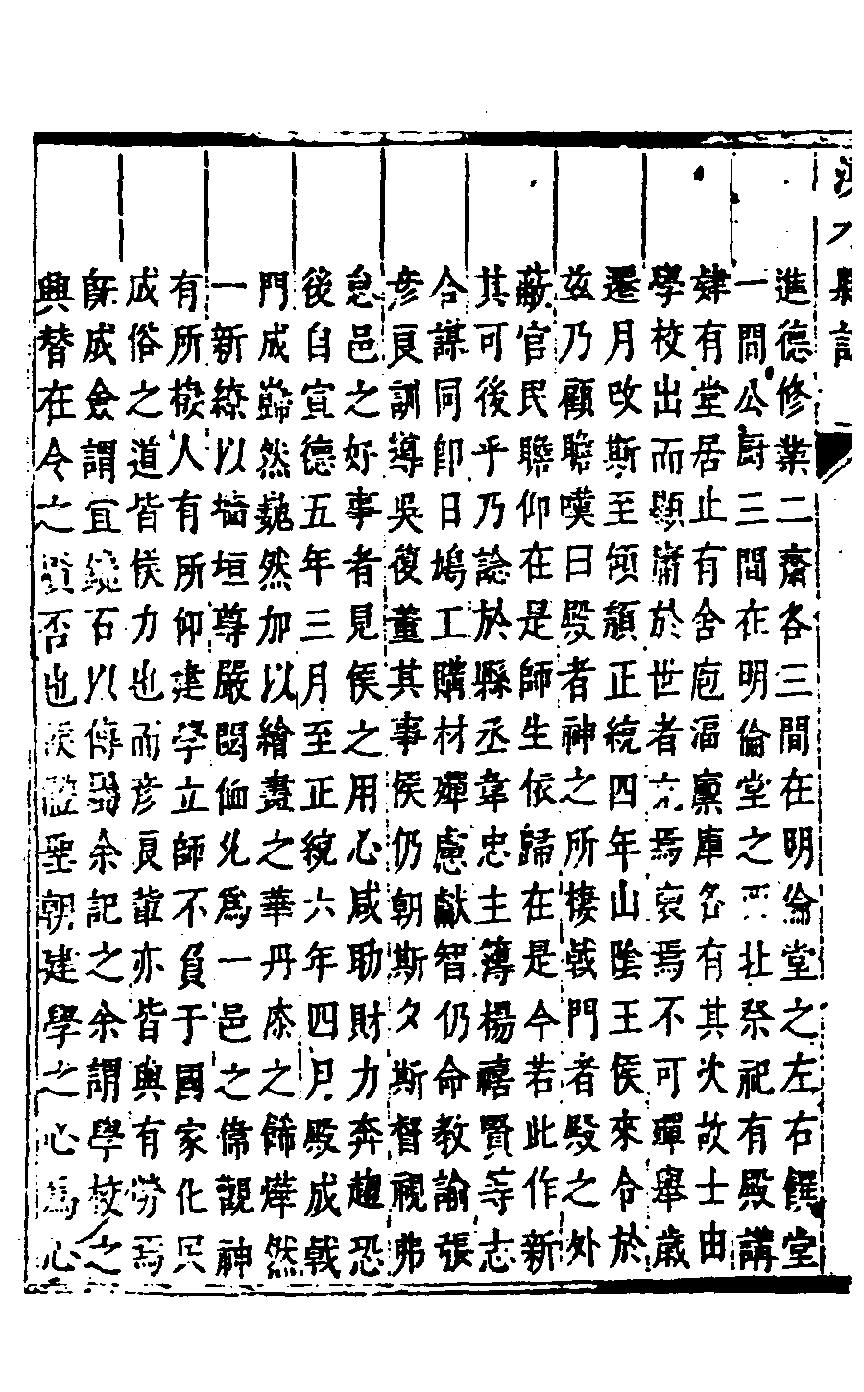 水縣誌
進德修業二齋各三間在明倫堂之左右饌堂
一間公厨三間在明倫堂之北祭祀有殿講
肄有堂居止有舍庖湢廩庫各有其次故士由
學校出而顯庸於世者尤焉裒焉不可殫舉歲
遷月改斯至傾頹正統四年山陰王侯來令於
玆乃顧瞻嘆曰殿者神之所棲戟門者殿之外
蔽官民瞻仰在是師生依歸在是今若此作新
其可後乎乃諗於縣丞韋忠主簿楊禧賢等志
合謀同即日鳩工購材殫慮獻智仍命教諭張
彦良訓導吳復董其事侯仍朝斯夕斯督視弗
怠邑之好事者見侯之用心咸助財力奔趨恐
後自宣德五年三月至正統六年四月殿成戟
門成巋然巍然加以繪畫之華丹漆之飾燁然
一新繚以墻垣尊嚴閟侐允爲一邑之偉觀神
有所棲人有所仰建學立師不負于國家化民
成俗之道皆侯力也而彦良輩亦皆與有勞焉
旣成僉謂宜鑱石以傳囑余記之余謂學校之
興替在令之賢否也侯體聖朝建學之心爲心